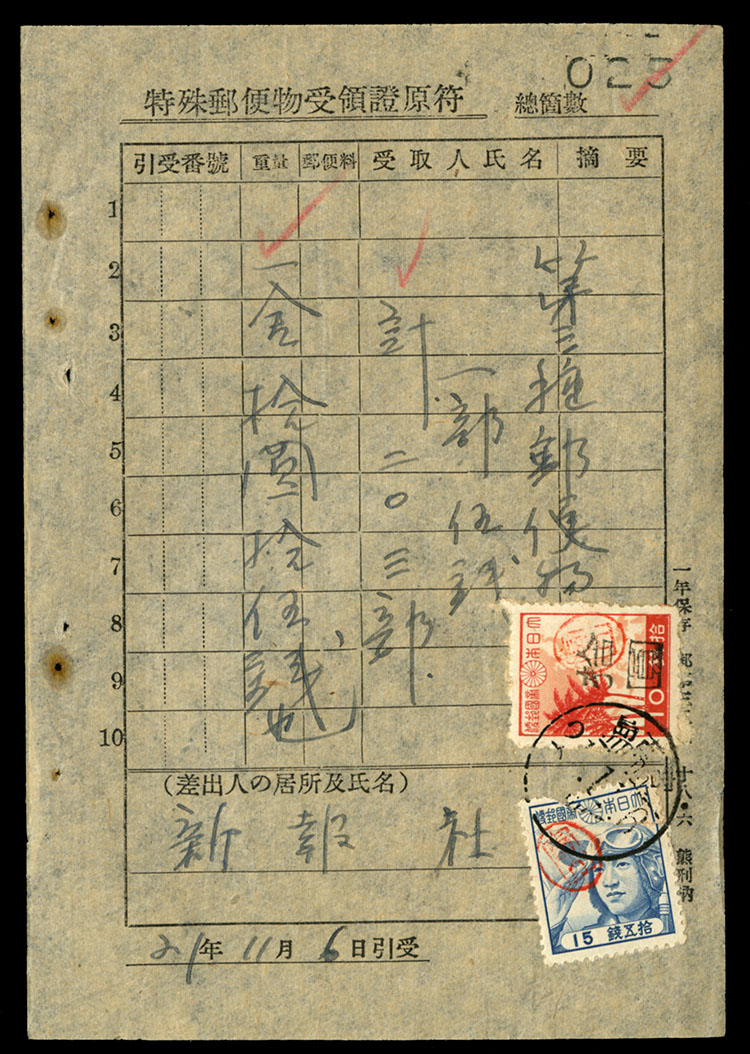 025
特殊郵便物受領證原符
總箇數
引受番號 重量 郵便料 受取人氏名 摘要
1
2
3
4
5
6
7
8
9
10
第三種郵便物
一部 伍銭
計 二〇三部
一金拾圓拾伍銭也
拾圓
大日本帝國郵便
大日本帝國郵便
15 拾五錢
(差出人の居所及氏名)
新報社
21年11月6日引受
一年保存
廿八・六